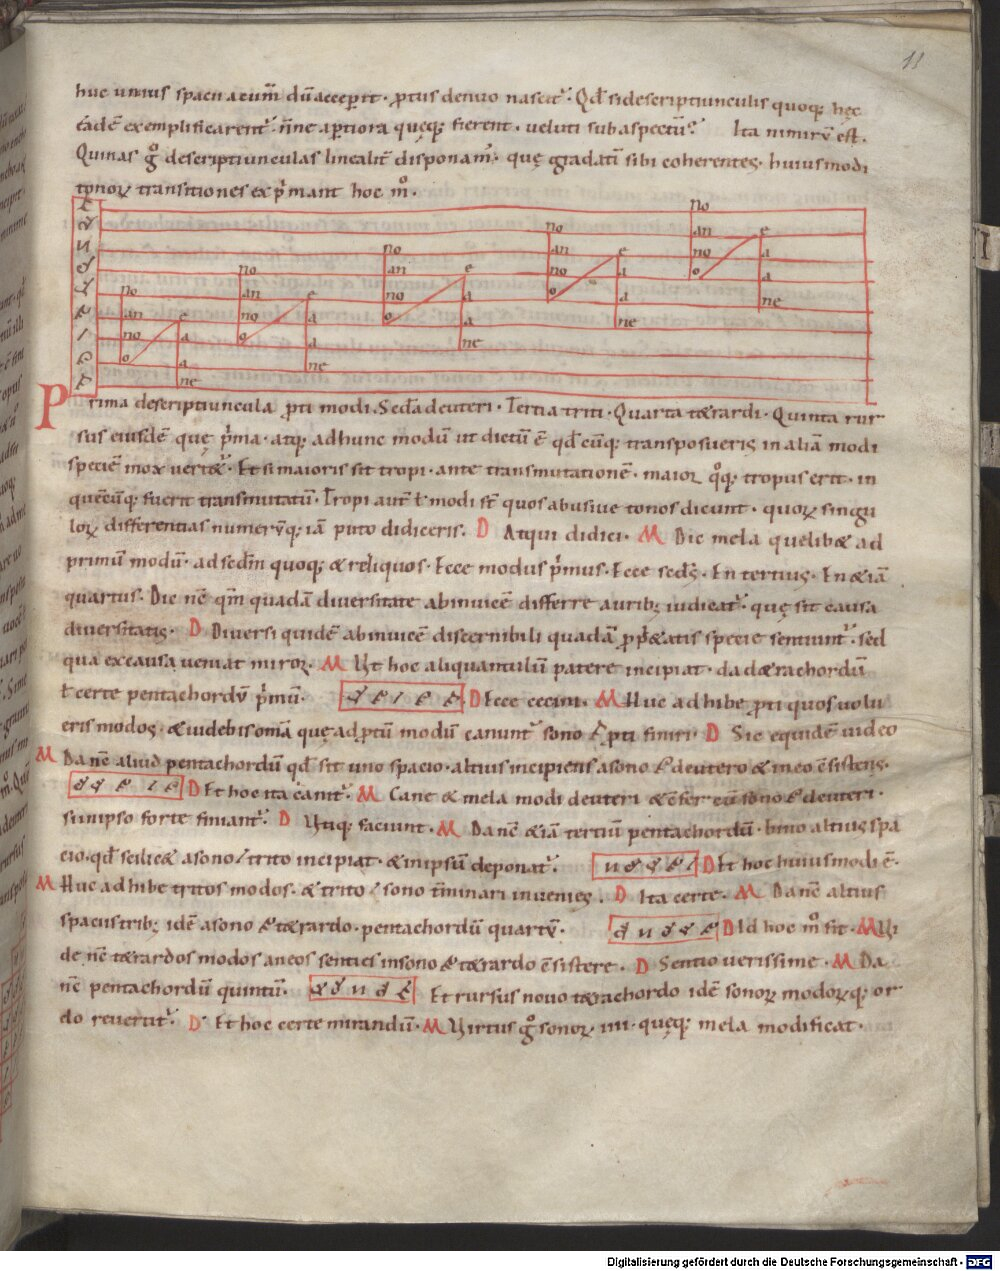 11
huc unius spacii acumē dū acceperit · ptus denuo nascit᷑ · Qđ si descriptiunculis quoq; hęc
eadē exemplificarent᷑ · ñne aptiora quęq; fierent · veluti sub aspectū? Ita nimirū est.
Quinas g̊ descriptiunculas linealit̄ disponam᷑ · quę gradatī sibi coherentes · huiusmodi
tonoꝝ transitiones ex p̓mant hoc m̊ .
no no no no no
an an an an an
no no no no no
o o o o o
e e e e e
a a a a a
a a a a a
ne ne ne ne ne
Prima descriptiuncula pti modi. Secđa deuteri · Tertia triti · Quarta tetrardi · Quinta rur
sus eiusdē quę p̓ma · atq; ad hunc modū ut dictū ē qđcūq; transposueris in aliā modi
speciē mox vertet᷑ · Et si maioris sit tropi · ante transmutationē · maioꝝ q̊q; tropus erit · in
quēcūq; fuerit transmutatū · Tropi aut̄ ł modi st̄ quos abusive tonos dicunt · quoꝝ singu
loꝝ differentias numerūq; iā puto didiceris. D Atqui didici · M Dic mela quelibet ad
primū modū · ad secđm quoq; & reliquos · Ecce modus p̓mus · Ecce secđs · En tertius · En & iā
quartus · Dic nē qm̄ quadā diversitate abinvicē differre aurib; iudicat᷑ · quę sit causa
diversitatis · D Diversi quidē abinvicē discernibili quadā pprietatis specie sentiunt᷑ · sed
qua ex causa veniat miror · M Ut hoc aliquantulū patere incipiat · da tetrachordū
ł certe pentachordū p̓mū · D Ecce cecini · M Huc adhibe pti quos volu
eris modos · & videbis omīa quę ad ptū modū canunt᷑ sono pti finiri · D Sic equidē video
M Da nē aliud pentachordū qđ sit uno spacio · altius incipiens a sono deutero & in eo c̄sistens ·
D Et hoc ita canit᷑ · M Cane & mela modi deuteri & c̄fer cū sono deuteri ·
si in ipso forte finiant᷑ · D Utiq; faciunt · M Da nē & iā tertiū pentachordū · bino altius spa
cio · qđ scilicet a sono trito incipiat · & in ipsū deponat᷑ · D Et hoc huiusmodi ē ·
M Huc adhibe tritos modos · & trito sono t̄minari invenies · D Ita certe · M Da nē altius
spaciis trib; idē a sono tetrardo · pentachordū quartū · D Id hoc m̊ sit · M Vi
de nē tetrardos modos an eos senties in sono tetrardo c̄sistere · D Sentio verissime · M Da
nē pentachordū quintū · Et rursus novo tetrachordo idē sonoꝝ modoꝝq; or
do revertit᷑ · D Et hoc certe mirandū · M Virtus g̊ sonoꝝ iiii · quęq; mela modificat ·
Digitalisierung gefördert durch die Deutsche Forschungsgemeinschaft - DFG